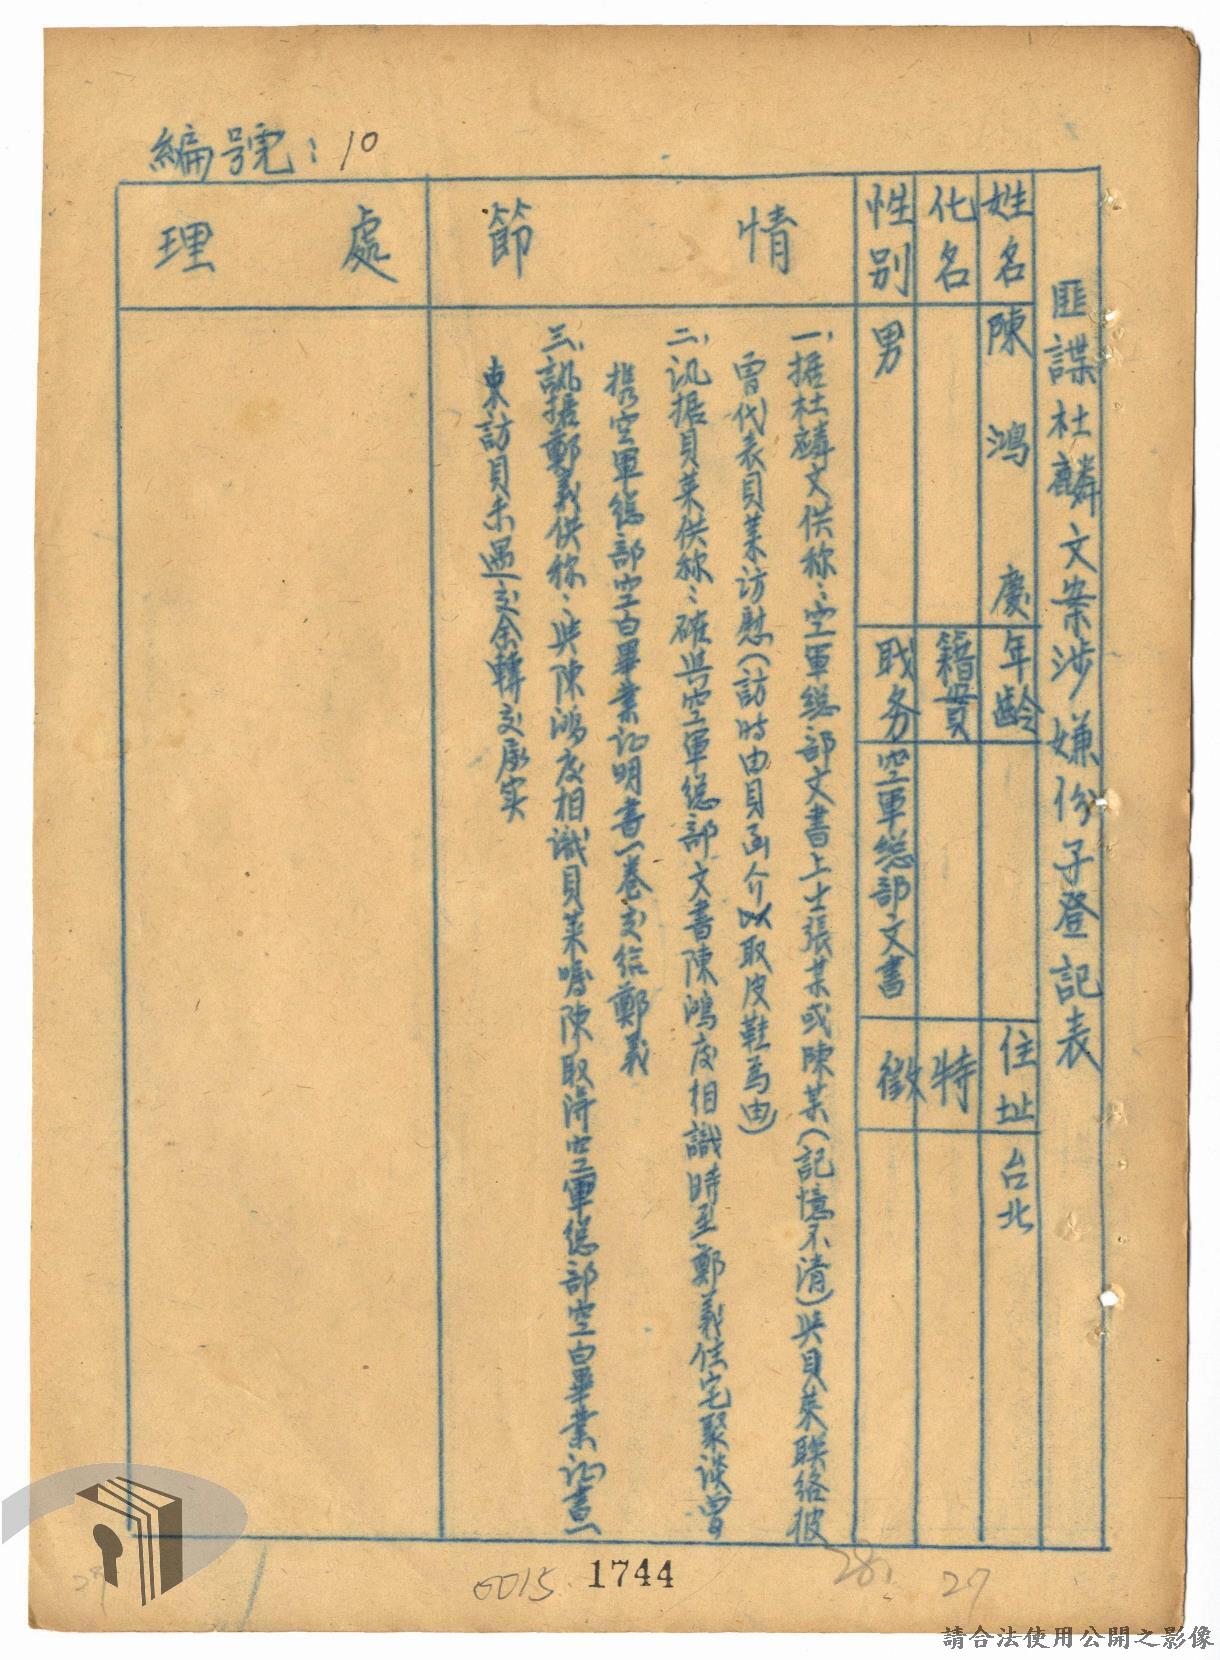 匪諜杜麟文案涉嫌份子登記表
編號：10
姓名 陳鴻慶 年齡 住址 台北
化名 籍貫 特
性別 男 職务 空軍總部文書 徵
情節
一、据杜麟文供称：空軍總部文書上士張某或陳某（記憶不清）與貝萊联络彼
曾代表貝萊访慰（訪時由貝函介以取皮鞋為由）
二、讯据貝萊供称：確與空軍總部文書陳鴻度相識時至鄭義住宅聚談曾
携空軍總部空白畢業证明書一卷交给鄭義
三、訊据鄭義供称：與陳鴻度相識貝萊囑陳取得空軍總部空白畢業证書一
束訪貝未遇交余轉交属实
處理
0015
1744
28
27
請合法使用公開之影像